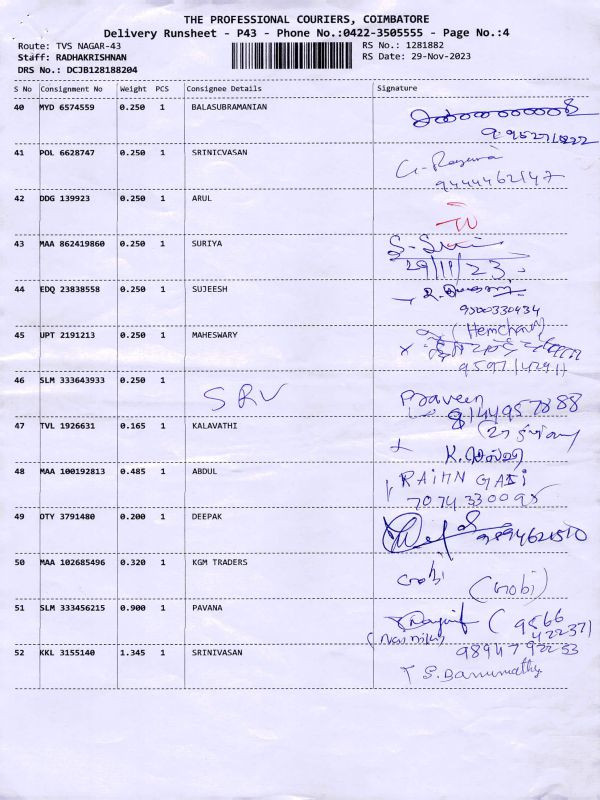 THE PROFESSIONAL COURIERS, COIMBATORE
Delivery Runsheet - P43 - Phone No.:0422-3505555 - Page No.:4
Route: TVS NAGAR-43 RS No.: 1281882
Staff: RADHAKRISHNAN RS Date: 29-Nov-2023
DRS No.: DCJB128188204
S No Consignment No Weight PCS Consignee Details Signature
40 MYD 6574559 0.250 1 BALASUBRAMANIAN
41 POL 6628747 0.250 1 SRINICVASAN
9444462147
42 DDG 139923 0.250 1 ARUL
43 MAA 862419860 0.250 1 SURIYA
29/11/23
44 EDQ 23838558 0.250 1 SUJEESH
9500330434
45 UPT 2191213 0.250 1 MAHESWARY
46 SLM 333643933 0.250 1 SRV Praveen
47 TVL 1926631 0.165 1 KALAVATHI
48 MAA 100192813 0.485 1 ABDUL
49 OTY 3791480 0.200 1 DEEPAK
50 MAA 102685496 0.320 1 KGM TRADERS
51 SLM 333456215 0.900 1 PAVANA
52 KKL 3155140 1.345 1 SRINIVASAN
T S. Banumathy